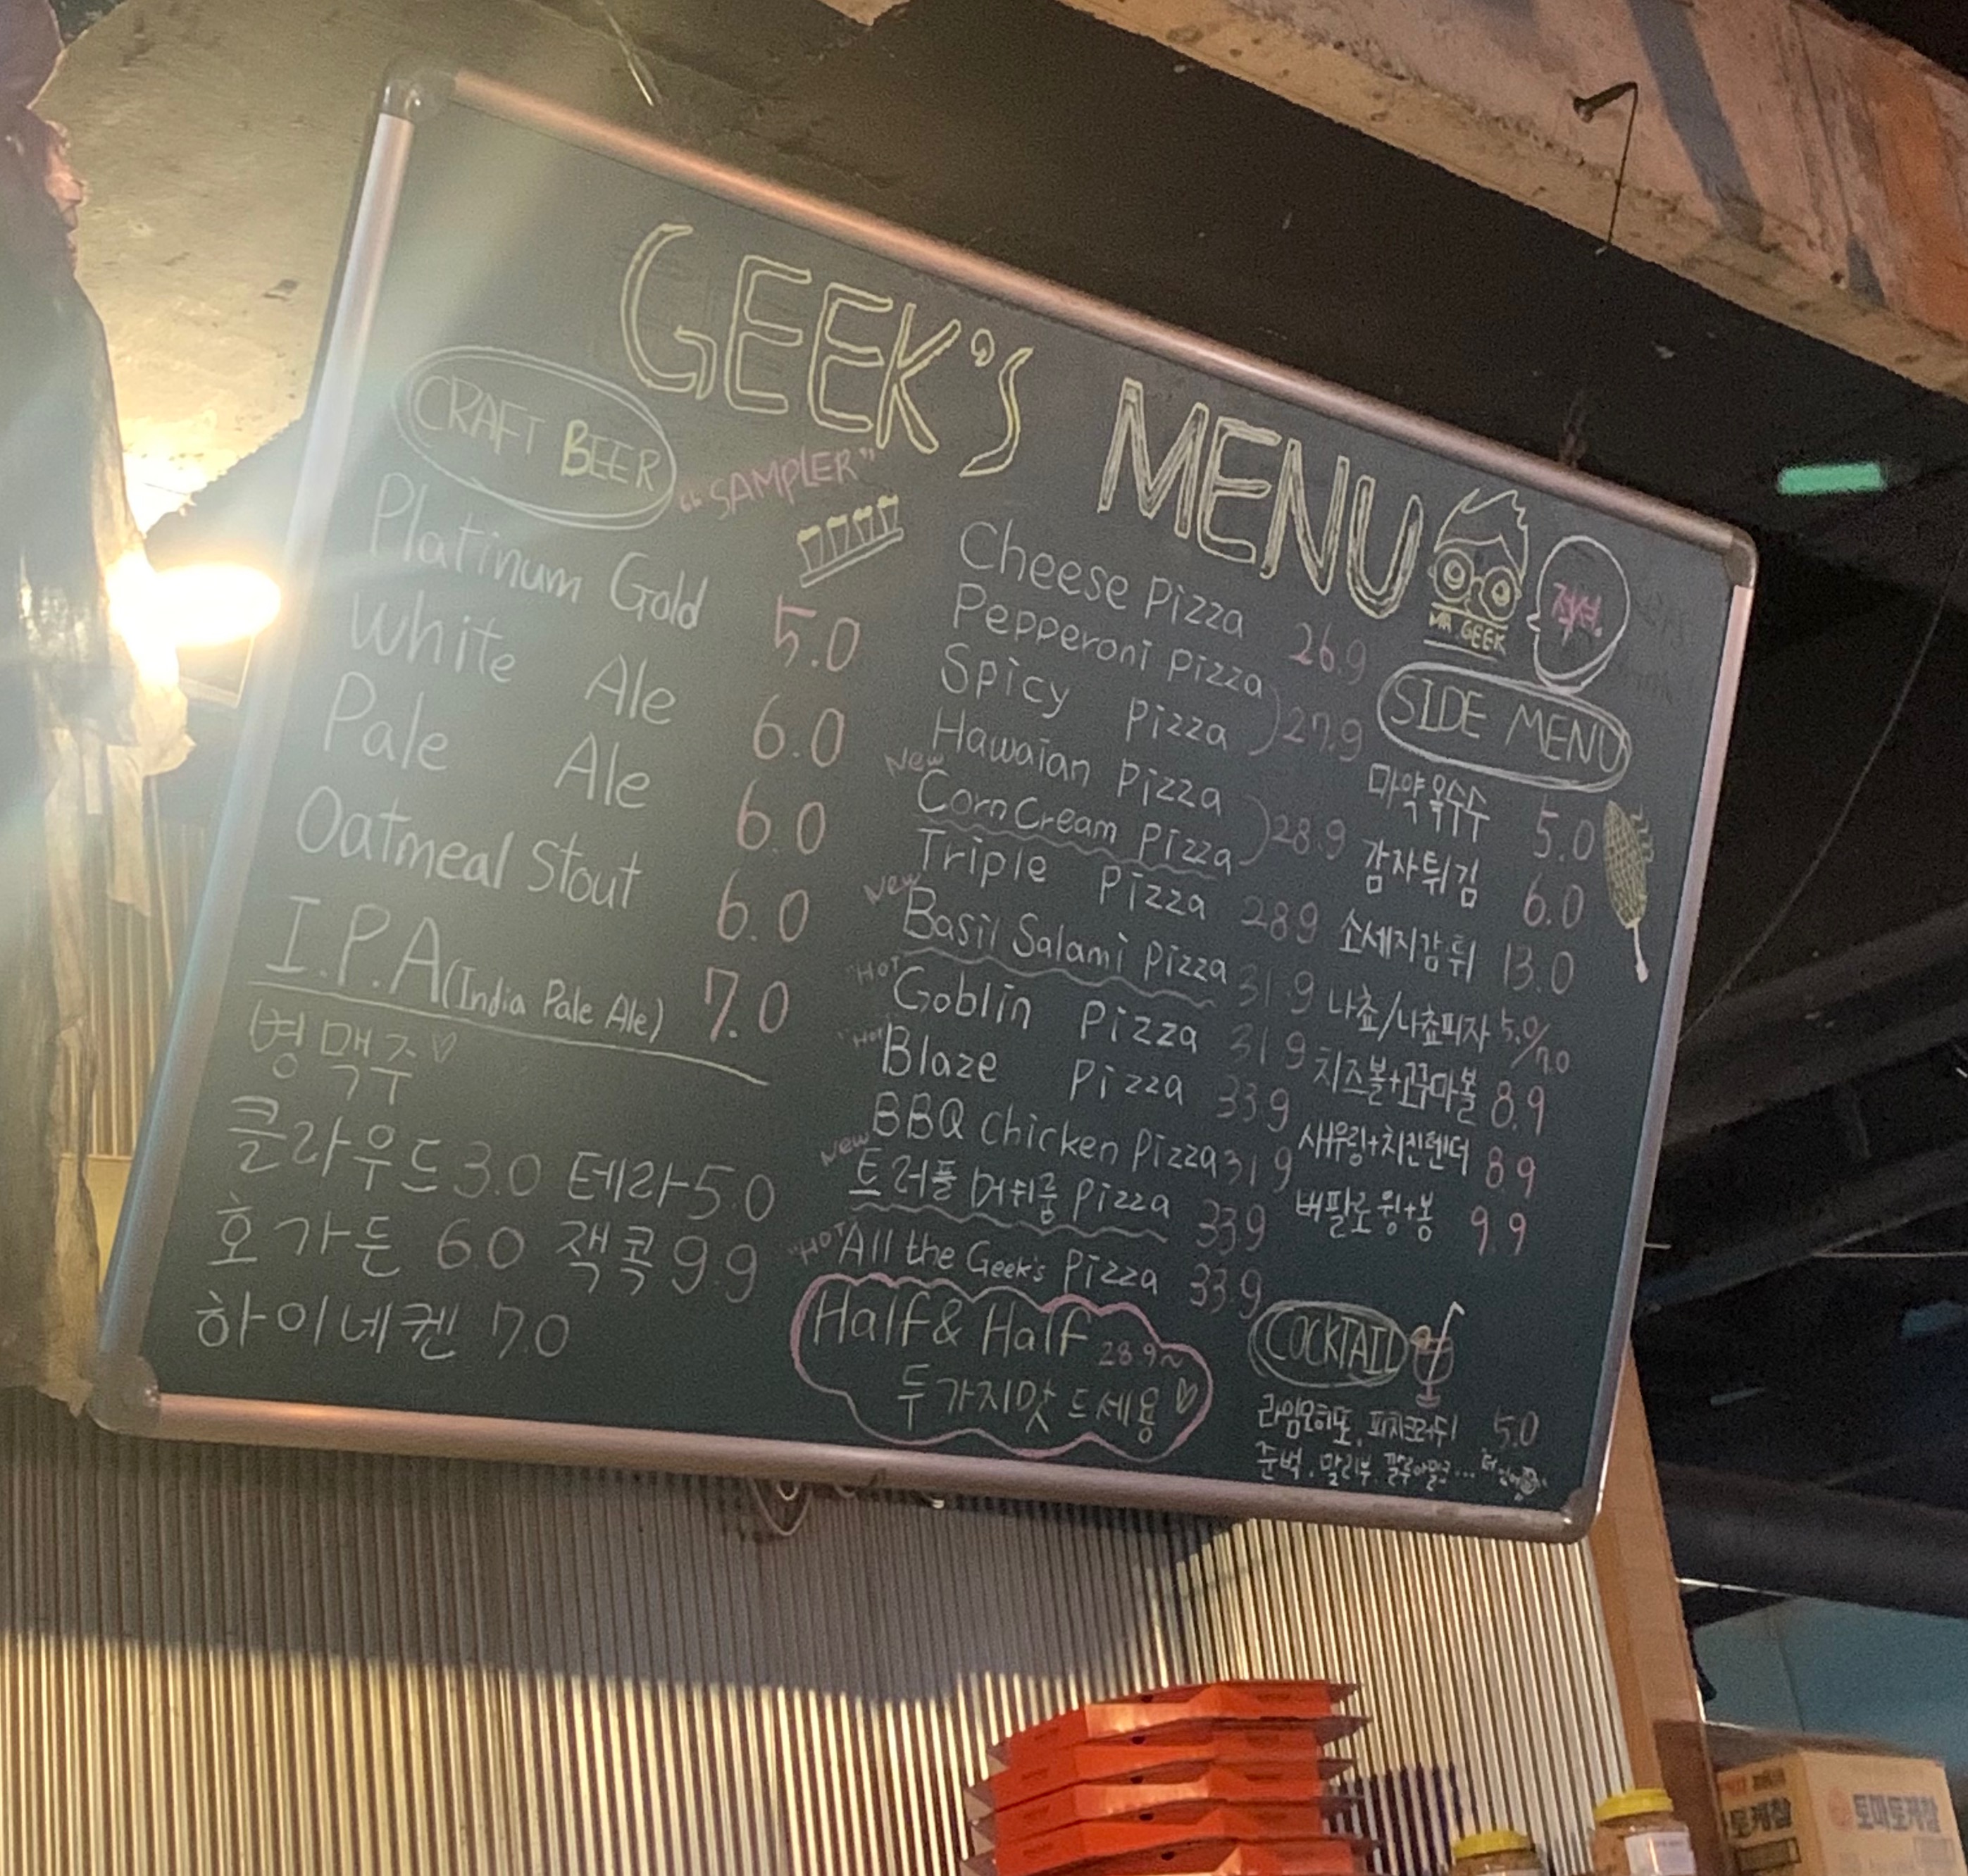 GEEK'S MENU
MR. GEEK
CRAFT BEER
"SAMPLER"
Platinum Gold 5.0
White Ale 6.0
Pale Ale 6.0
Oatmeal Stout 6.0
I.P.A (India Pale Ale) 7.0
병맥주♡
클라우드 3.0 테라 5.0
호가든 6.0 잭콕 9.9
하이네켄 7.0
Cheese Pizza 26.9
Pepperoni Pizza
Spicy Pizza ) 27.9
Hawaian Pizza
New Corn Cream Pizza ) 28.9
Triple Pizza 28.9
New Basil Salami Pizza 31.9
"HOT" Goblin Pizza 31.9
"HOT" Blaze Pizza 33.9
BBQ Chicken Pizza 31.9
New 트러플 머쉬룸 Pizza 33.9
"HOT" All the Geek's Pizza 33.9
Half & Half 28.9~
두가지맛 드세용♡
SIDE MENU
마약옥수수 5.0
감자튀김 6.0
소세지감튀 13.0
나쵸/나쵸피자 5.0/7.0
치즈볼+꾸마볼 8.9
새우링+치킨텐더 8.9
버팔로 윙+봉 9.9
COCKTAIL
라임모히또, 피치크러쉬 5.0
준벅, 말리부, 깔루아밀크...
토마토케찹
토마토케찹